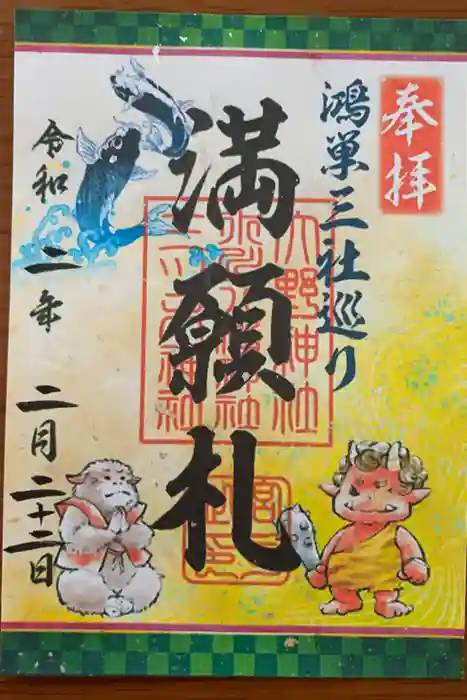 奉拝
鴻巣三社巡り
満願札
令和二年二月二十二日
大野神社